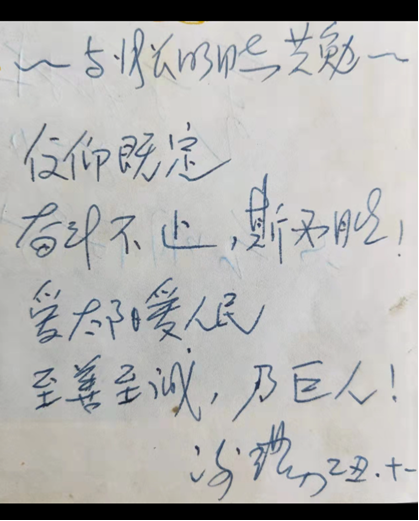 ~与彬然明晓共勉~
信仰既定
奋斗不止,斯为胜!
爱大邦爱人民
至善至诚,乃巨人!
乙丑.十一